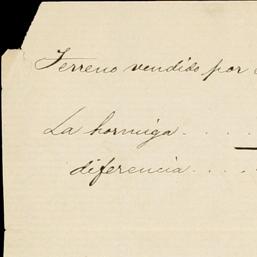 Terreno vendido por
La hormiga . . . .
diferencia . . . .